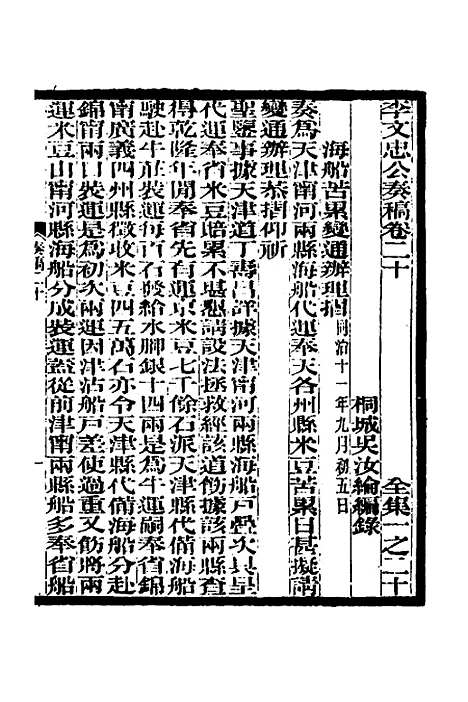 李文忠公奏稿卷二十　全集一之二十
桐城吳汝綸編錄
海船苦累變通辦理摺同治十一年九月初五日
奏爲天津甯河兩縣海船代運奉天各州縣米豆苦累日甚擬請
變通辦理恭摺仰祈
聖鑒事據天津道丁壽昌詳據天津甯河兩縣海船戶疊次具呈
代運奉省米豆賠累不堪懇請設法拯救經該道飭據該兩縣查
得乾隆年間奉省先有運京米豆七千餘石派天津縣代僱海船
駛赴牛莊裝運每百石發給水腳銀十四兩是爲牛運嗣奉省錦
甯廣義四州縣徵收米豆四五萬石亦令天津縣代僱海船分赴
錦甯兩口裝運是爲初次兩運因津沽船戶差使過重又飭將兩
運米豆由甯河縣海船分成裝運蓋從前津甯兩縣船多奉省船
奏稿二十
一